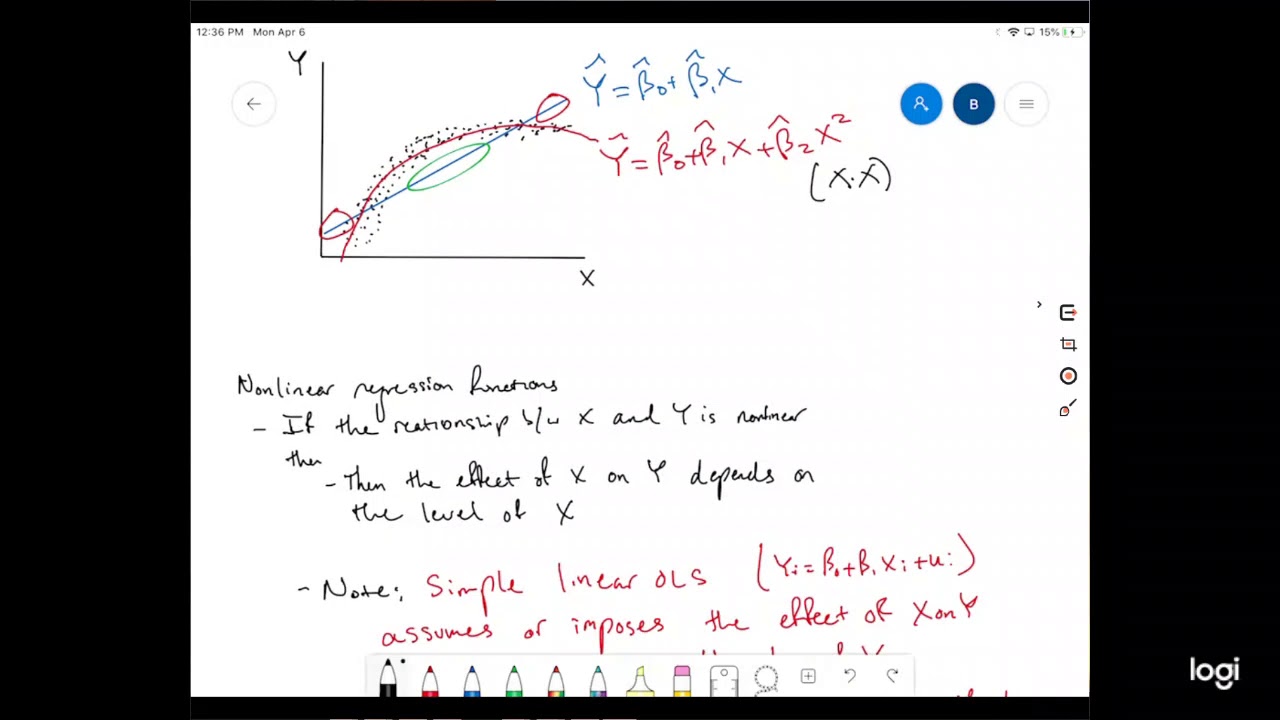 12:36 PM Mon Apr 6
15%
Y
Ŷ = β̂₀ + β̂₁X
B
Ŷ = β̂₀ + β̂₁X + β̂₂X²
(X·X)
X
Nonlinear regression functions
- If the reationship b/w X and Y is nonlinear
then
- Then the effect of X on Y depends on
the level of X
- Note: Simple linear OLS (Yᵢ = β₀ + β₁Xᵢ + uᵢ)
assumes or imposes the effect of X on Y
logi